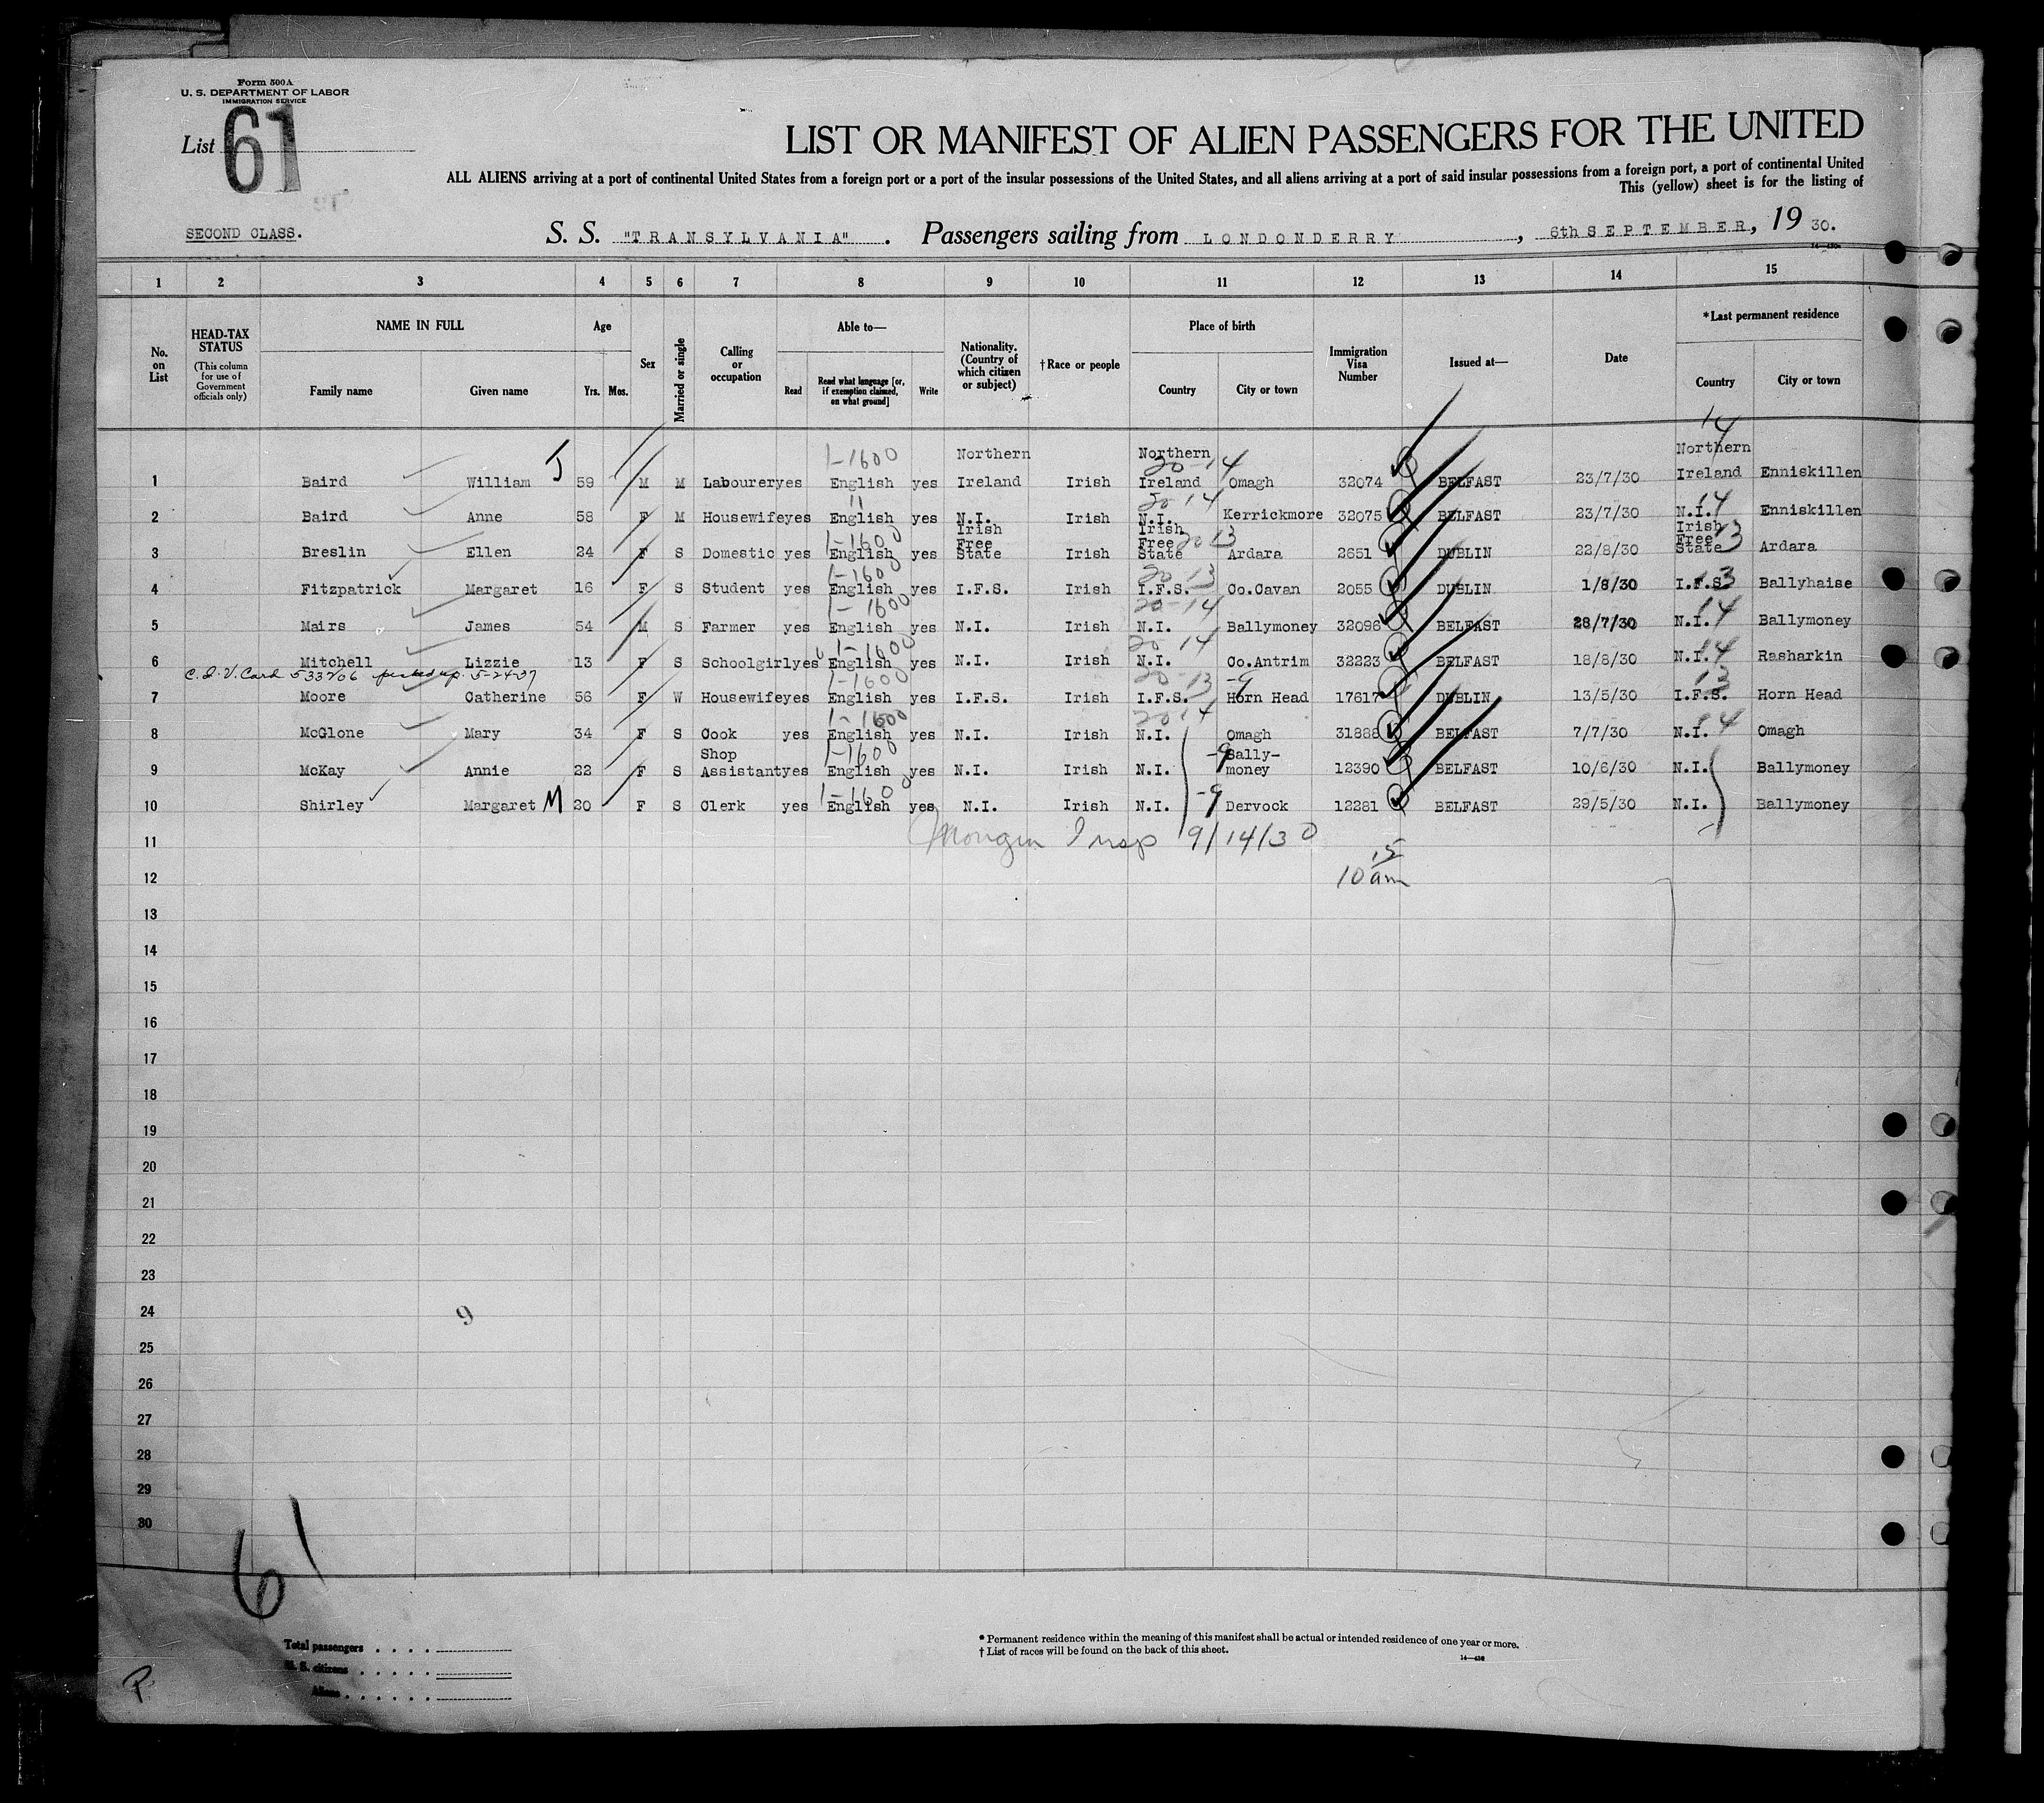 Form 500A
U. S. DEPARTMENT OF LABOR
IMMIGRATION SERVICE
List 61
LIST OR MANIFEST OF ALIEN PASSENGERS FOR THE UNITED
ALL ALIENS arriving at a port of continental United States from a foreign port or a port of the insular possessions of the United States, and all aliens arriving at a port of said insular possessions from a foreign port, a port of continental United
This (yellow) sheet is for the listing of
SECOND CLASS. S. S. "TRANSYLVANIA". Passengers sailing from LONDONDERRY, 6th SEPTEMBER, 19 30.
1 2 3 4 5 6 7 8 9 10 11 12 13 14 15
No. on List
HEAD-TAX STATUS (This column for use of Government officials only)
NAME IN FULL Family name Given name
Age Yrs. Mos.
Sex
Married or single
Calling or occupation
Able to— Read Read what language [or, if exemption claimed, on what ground] Write
Nationality. (Country of which citizen or subject)
†Race or people
Place of birth Country City or town
Immigration Visa Number
Issued at—
Date
*Last permanent residence Country City or town
14
1-1600 Northern Northern 20-14 Northern
1 Baird William J 59 M M Labourer yes English yes Ireland Irish Ireland Omagh 32074 BELFAST 23/7/30 Ireland Enniskillen
11 20 14 14
2 Baird Anne 58 F M Housewife yes English yes N.I. Irish N.I. Kerrickmore 32075 BELFAST 23/7/30 N.I. Enniskillen
1-1600 Irish Free Irish Free 20 13 Irish Free 13
3 Breslin Ellen 24 F S Domestic yes English yes State Irish State Ardara 2651 DUBLIN 22/8/30 State Ardara
1-1600 20 13 13
4 Fitzpatrick Margaret 16 F S Student yes English yes I.F.S. Irish I.F.S. Co.Cavan 2055 DUBLIN 1/8/30 I.F.S. Ballyhaise
1-1600 20-14 14
5 Mairs James 54 M S Farmer yes English yes N.I. Irish N.I. Ballymoney 32096 BELFAST 28/7/30 N.I. Ballymoney
1-1600 20 14 14
6 Mitchell Lizzie 13 F S Schoolgirl yes English yes N.I. Irish N.I. Co.Antrim 32223 BELFAST 18/8/30 N.I. Rasharkin
C.I.V. Card 533206 picked up 5-24-37 1-1600 20-13 -9 13
7 Moore Catherine 56 F W Housewife yes English yes I.F.S. Irish I.F.S. Horn Head 17617 DUBLIN 13/5/30 I.F.S. Horn Head
1-1600 20 14 14
8 McGlone Mary 34 F S Cook yes English yes N.I. Irish N.I. Omagh 31888 BELFAST 7/7/30 N.I. Omagh
Shop 1-1600 -9 Bally-
9 McKay Annie 22 F S Assistant yes English yes N.I. Irish N.I. money 12390 BELFAST 10/6/30 N.I. Ballymoney
1-1600 -9
10 Shirley Margaret M 20 F S Clerk yes English yes N.I. Irish N.I. Dervock 12281 BELFAST 29/5/30 N.I. Ballymoney
11 Insp 9/14/30
15
12 10 am
13
14
15
16
17
18
19
20
21
22
23
24 9
25
26
27
28
29
30
61
Total passengers
U. S. citizens
Aliens
* Permanent residence within the meaning of this manifest shall be actual or intended residence of one year or more.
† List of races will be found on the back of this sheet.
14—430
P.